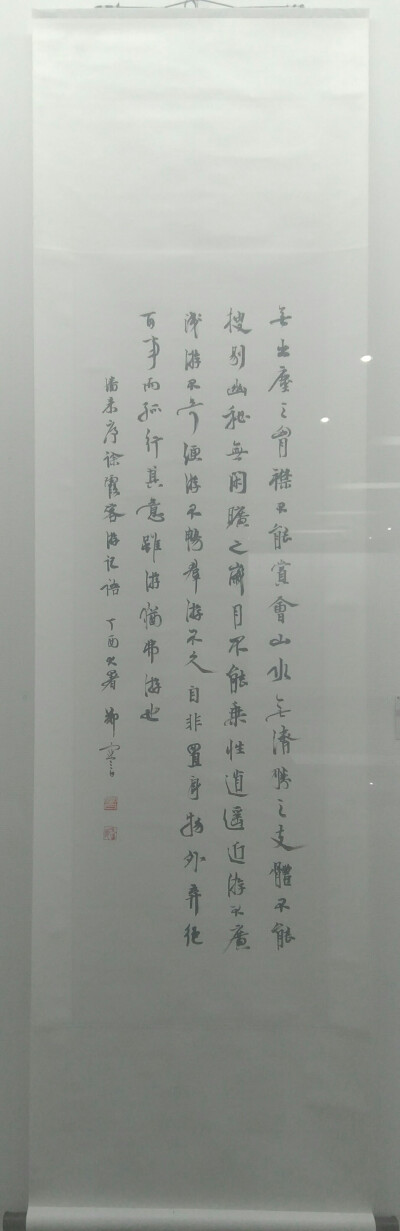 无出塵之胷襟不能賞會山水无濟勝之支體不能
搜剔幽秘無閑曠之歲月不能乘性逍遥近游不廣
浅游不奇便游不暢群游不久自非置身物外弃絶
百事而孤行其意雖游猶弗游也
潘耒序徐霞客游记语 丁酉大暑 鄭